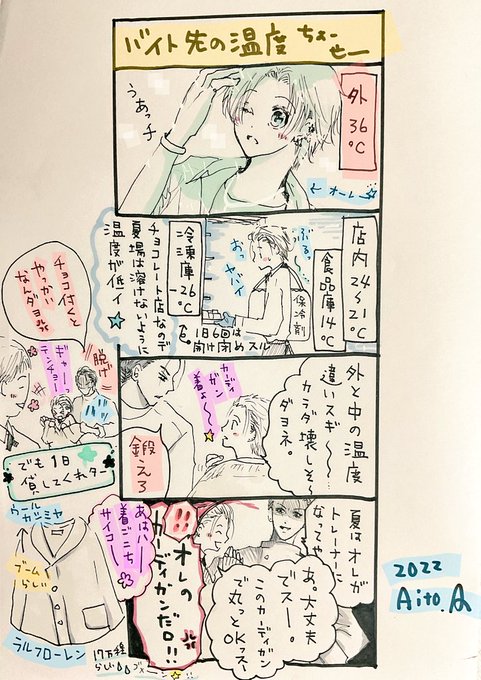 バイト先の温度
ちょーせー
外
36
℃
うあっチ
←オーレ☆
店内24〜21℃
食品庫14℃
冷凍庫-26℃
ぶるっ
おっ
ヤバイ
保冷剤
1日6回は
開け閉めスル
チョコレート店なので
夏場は溶けないように
温度が低イ★
外と中の温度
違いスギ〜〜
カラダ壊しそ〜
ダヨネ。
カーディガン
着よ〜〜☆
鍛えろ
チョコ付くと
やっかい
なんダヨ
脱げ
ギャー
テンチョー
でも1日
貸してくれター
夏はオレが
トレーナーに
なってや
あ。大丈夫
でスー。
このカーディガン
で丸っとOKっスー
!!
オレの
カーディガンだロ!!
あはハー
着ごこち
サイコー
ウール
カシミヤ
ブーム
らしい。
ラルフローレン
17万程
らしい
2022
Aito.A